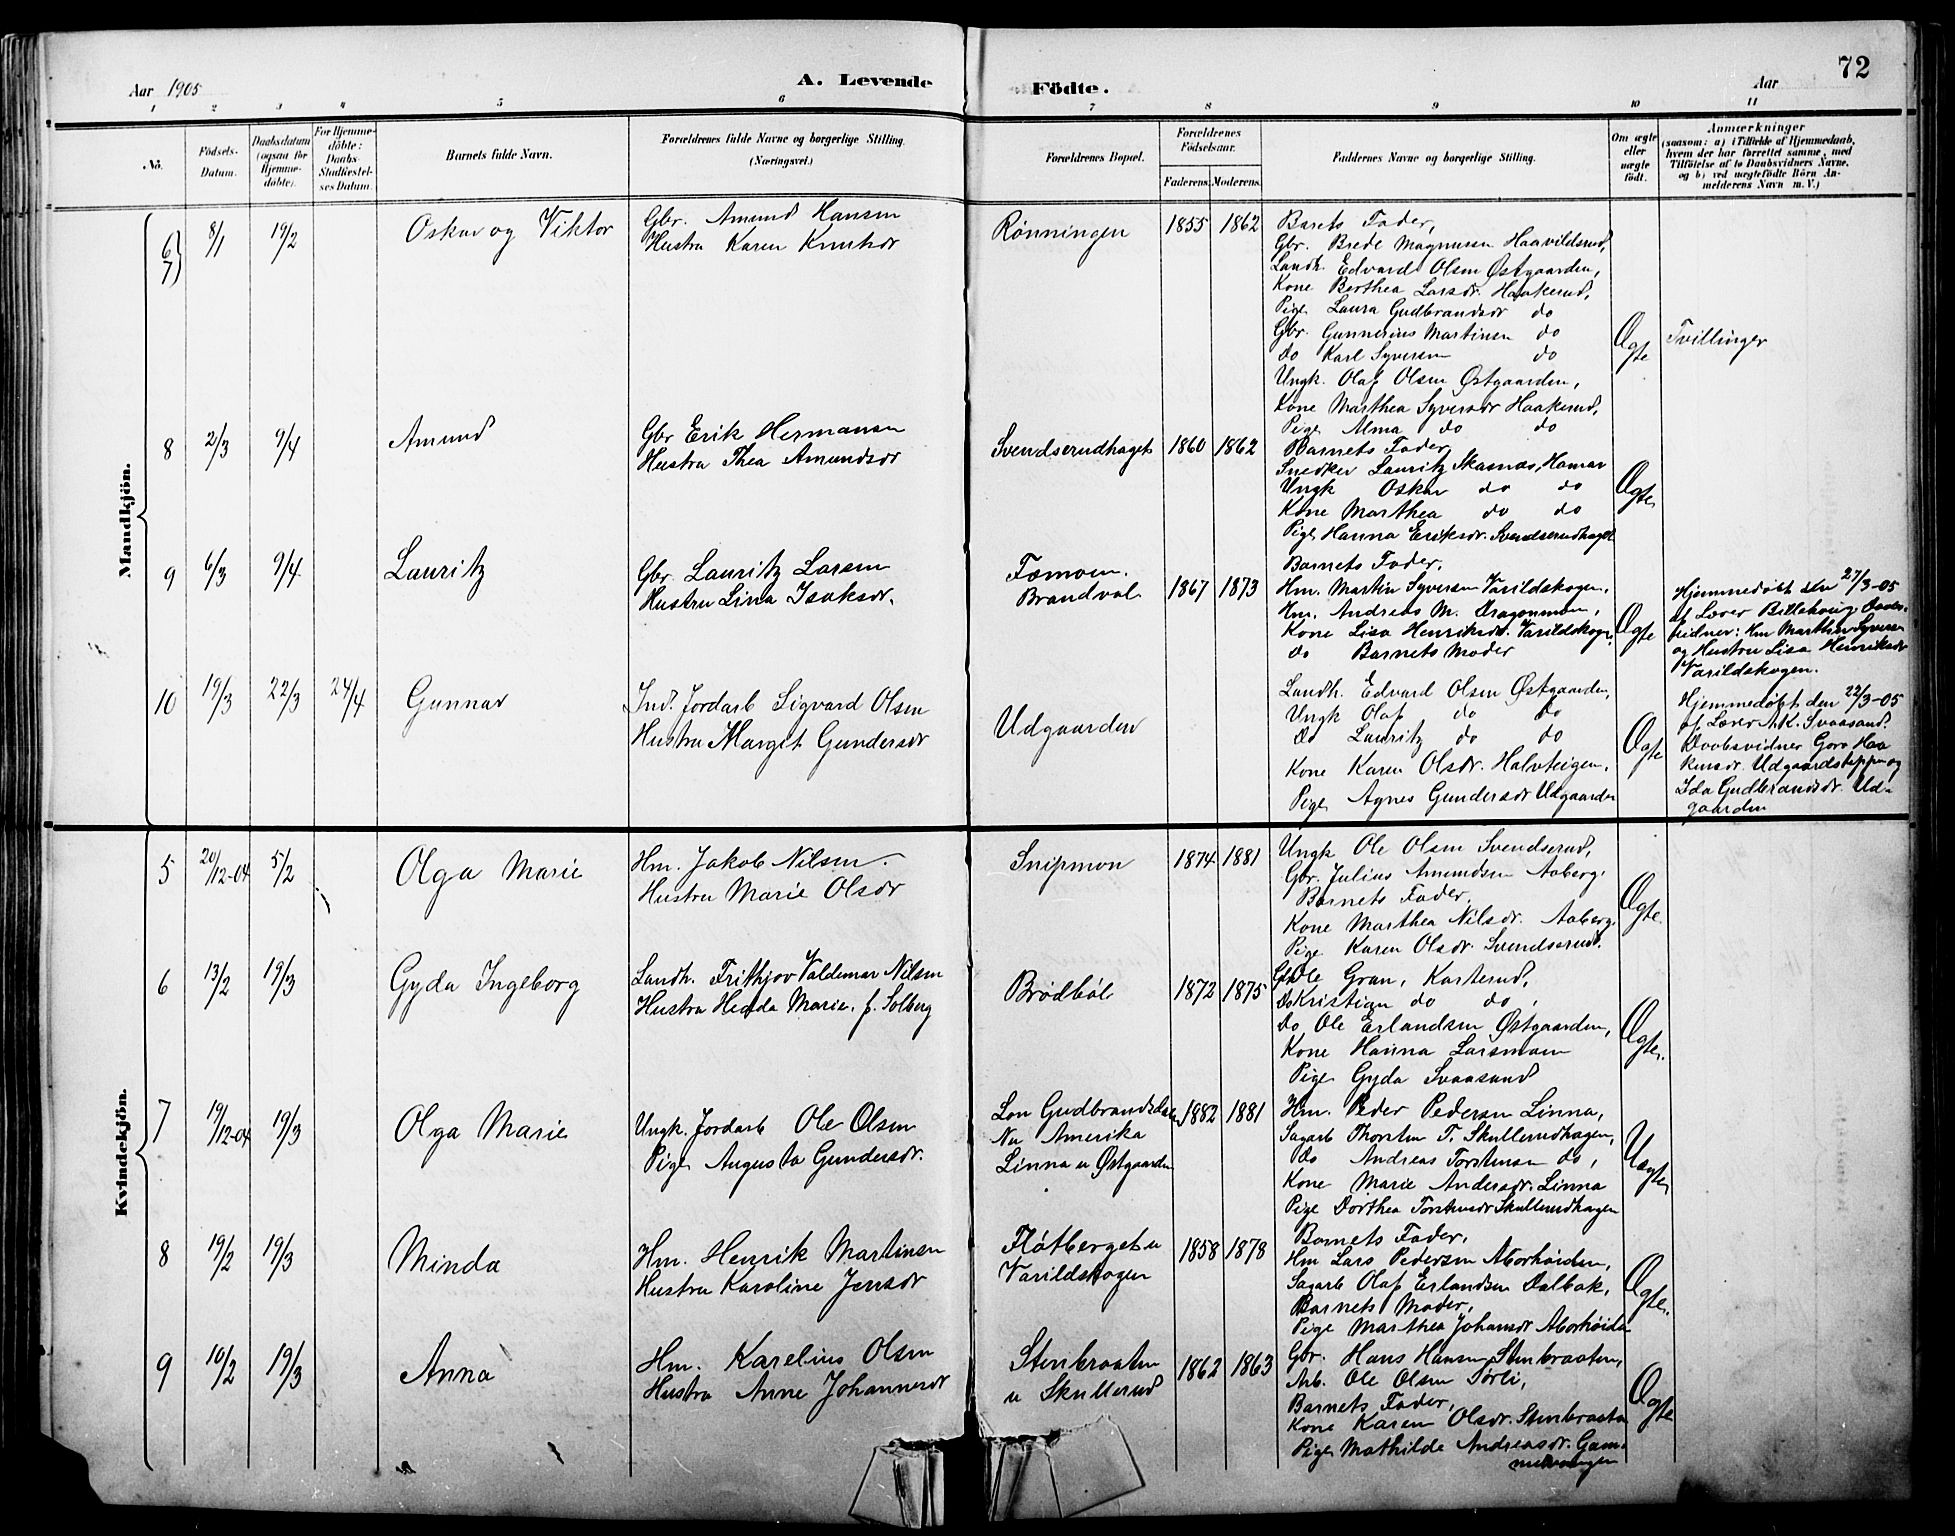 Aar 1905
A. Levende Födte.
Aar
72
1 2 3 4 5 6 7 8 9 10 11
Nö.
Födsels-Datum.
Daabsdatum (ogsaa for Hjemme-döbte).
For Hjemme-döbte: Daabs-Stadfæstel-ses Datum.
Barnets fulde Navn.
Forældrenes fulde Navne og borgerlige Stilling. (Næringsvei.)
Forældrenes Bopæl.
Forældrenes Födselsaar.
Faderens. Moderens.
Faddernes Navne og borgerlige Stilling.
Om ægte eller uægte födt.
Anmærkninger
(saasom: a) i Tilfælde af Hjemmedaab, hvem der har forrettet samme, med Tilföielse af to Daabsvidners Navne, og b) ved uægtefödte Börn An-melderens Navn m. V.)
Mandkjön.
6 7 8/1 19/2 Oskar og Viktor
Gbr. Amund Hansen
Hustru Karen Knutsdr
Rønningen 1855 1862
Barets Fader,
Gbr. Brede Magnusen Haavildsrud,
Landh. Edvard Olsen Østgaarden,
Kone Berthea Larsdr. Haakerud,
Pige Laura Gudbrandsdr do
Gbr. Gunnerius Martinsen do
do Karl Syversen do
Ungk. Olaf Olsen Østgaarden,
Kone Marthea Syversdr Haakerud,
Pige Alma do do
Ægte
Tvillinger
8 2/3 9/4 Amund
Gbr Erik Hermansen
Hustru Thea Amundsdr
Svendserudhaget 1860 1862
Barnets Fader,
Snedker Lauritz Skasnæs, Hamar
Ungk Oskar do do
Kone Marthea do do
Pige Hanna Eriksdr. Svendserudhaget
Ægte
9 6/3 9/4 Lauritz
Gbr. Lauritz Larsen
Hustru Lina Isaksdr.
Fæmoen.
Brandval 1867 1873
Barnets Fader,
Hm. Martin Syversen Varildskogen,
Hm. Andreas M. Dragonmoen,
Kone Lisa Henriksdr. Varildskogen,
do Barnets Moder
Ægte
Hjemmedøbt den 27/3-05
af Lærer Billehaug. Daabs-
vidner: Hm Marthin Syversen
og Hustru Lisa Henriksdr
Varildskogen.
10 19/3 22/3 24/4 Gunnar
Ind. Jordarb Sigvard Olsen
Hustru Margit Gundersdr
Udgaarden
Landh. Edvard Olsen Østgaarden,
Ungk Olaf do do
Do Lauritz do do
Kone Karen Olsdr. Halvteigen,
Pige Agnes Gundersdr Udgaarden
Ægte
Hjemmedøbt den 22/3-05
af Lærer A.K. Svaasand.
Daabsvidner Goro Haa
kensdr. Udgaardseppen og
Ida Gudbrandsdr. Ud-
gaarden
Kvindekjön.
5 20/12-04 5/2 Olga Marie
Hm. Jakob Nilsen.
Hustru Marie Olsdr
Snipmon 1874 1881
Ungk Ole Olsen Svendserud,
Gbr. Julius Amundsen Aaberg,
Barnets Fader,
Kone Marthea Nilsdr. Aaberg,
Pige Karen Olsdr. Svendserud.
Ægte.
6 13/2 19/3 Gyda Ingeborg
Landh. Frithjov Valdemar Nilsen
Hustru Hedda Marie, f. Solberg
Brødbøl 1872 1875
Gbr Ole Gran, Kasterud,
Do Kristian do do,
Do Ole Erlandsen Østgaarden,
Kone Hanna Larsmoen
Pige Gyda Svaasand
Ægte.
7 19/12-04 19/3 Olga Marie
Ungk. Jordarb Ole Olsen
Pige Augusta Gundersdr.
Lon Gudbrandsdalen
Nu Amerika
Linna u Østgaarden
1882 1881
Hm. Peder Pedersen Linna,
Sagarb Thorsten T. Skullerudhagen,
Do Andreas Torstensen do,
Kone Marie Andersdr. Linna
Pige Dorthea Torstensdr Skullerudhagen
Uægte
8 19/2 19/3 Minda
Hm. Henrik Martinsen
Hustru Karoline Jensdr
Fløtberget u
Varildskogen
1858 1878
Barnets Fader,
Hm Lars Pedersen Aborhøiden,
Sagarb Olaf Erlandsen Dalbak,
Barnets Moder,
Pige Marthea Johansdr Aborhøiden
Ægte.
9 10/2 19/3 Anna
Hm. Karelius Olsen
Hustru Anne Johannesdr
Stenbraaten
u Skullerud
1862 1863
Gbr. Hans Hansen Stenbraaten,
Arb. Ole Olsen Sørli,
Barnets Fader,
Kone Karen Olsdr. Stenbraaten
Pige Mathilde Andreasdr. Gam-
melvangen
Ægte